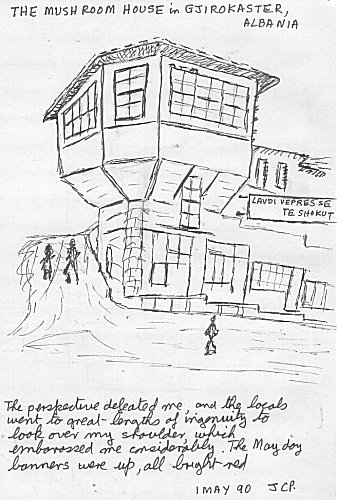 THE MUSHROOM HOUSE in GJIROKASTER,
ALBANIA
LAVDI VEPRES SE
TE SHOKUT
The perspective defeated me, and the locals
went to great lengths of ingenuity to
look over my shoulder, which
embarrassed me considerably. The May day
banners were up, all bright red
1 MAY 90 JCP.